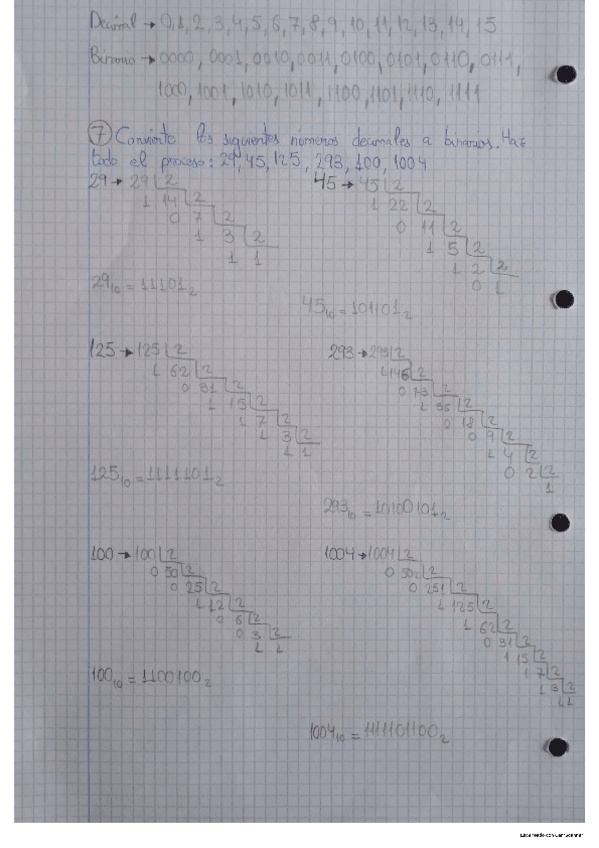 Decimal → 0, 1, 2, 3, 4, 5, 6, 7, 8, 9, 10, 11, 12, 13, 14, 15
Binario → 0000, 0001, 0010, 0011, 0100, 0101, 0110, 0111,
1000, 1001, 1010, 1011, 1100, 1101, 1110, 1111
7 Convierte los siguientes números decimales a binarios. Haz
todo el proceso: 29, 45, 125, 293, 100, 1004
29 → 29 2
1 14 2
0 7 2
1 3 2
1 1
29₁₀ = 11101₂
45 → 45 2
1 22 2
0 11 2
1 5 2
1 2 2
0 1
45₁₀ = 101101₂
125 → 125 2
1 62 2
0 31 2
1 15 2
1 7 2
1 3 2
1 1
125₁₀ = 1111101₂
293 → 293 2
1 146 2
0 73 2
1 36 2
0 18 2
0 9 2
1 4 2
0 2 2
1
293₁₀ = 10100101₂
100 → 100 2
0 50 2
0 25 2
1 12 2
0 6 2
0 3 2
1 1
100₁₀ = 1100100₂
1004 → 1004 2
0 502 2
0 251 2
1 125 2
1 62 2
0 31 2
1 15 2
1 7 2
1 3 2
1 1
1004₁₀ = 1111101100₂
Escaneado con CamScanner